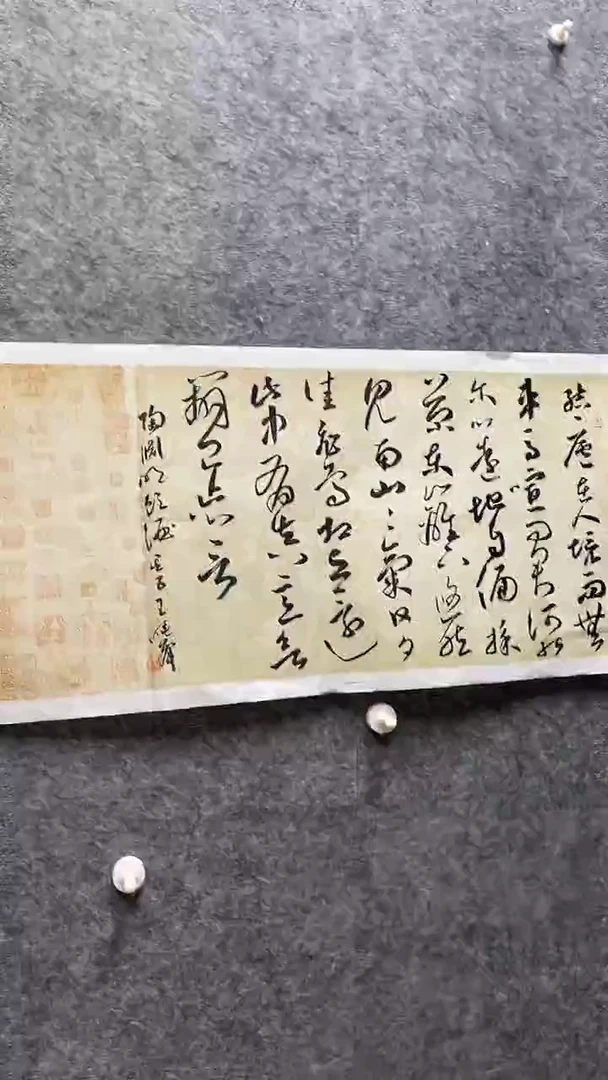 结庐在人境而无
车马喧问君何能
尔心远地自偏採
菊东篱下悠然
见南山々气日夕
佳飞鸟相与还
此中有真意欲
辨已忘言
陶渊明饮酒